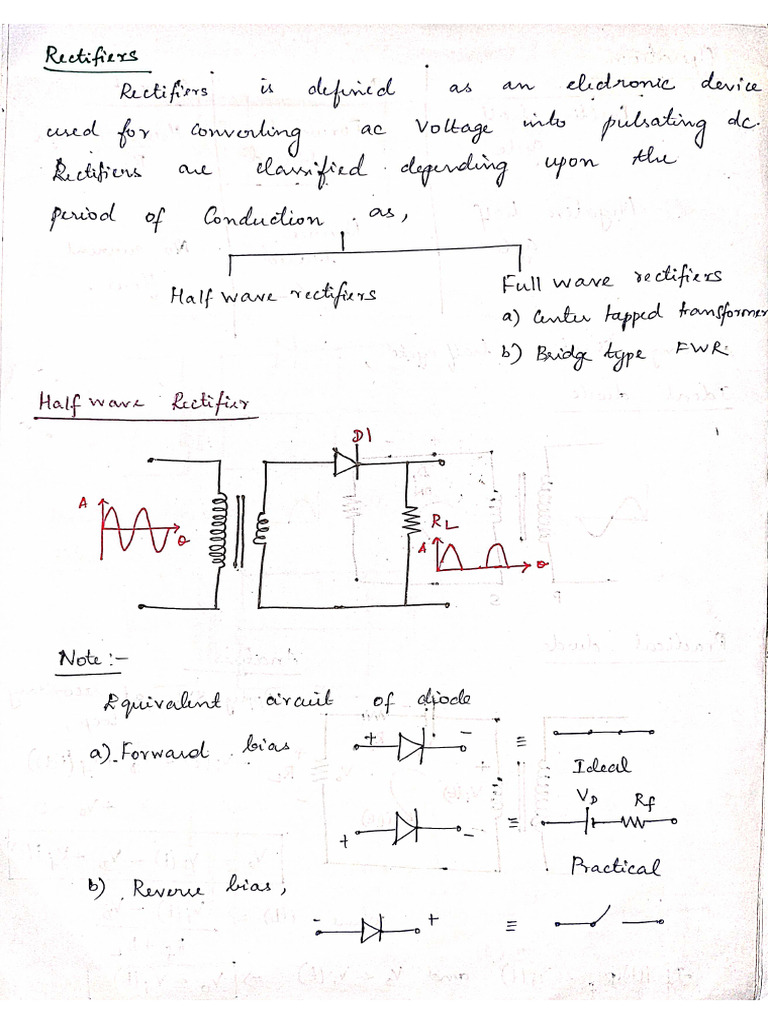 Rectifiers
Rectifiers is defined as an electronic device
used for converting ac Voltage into pulsating dc.
Rectifiers are classified depending upon the
period of Conduction as,
Half wave rectifiers
Full wave rectifiers
a) Center tapped transformer
b) Bridge type FWR
Half wave Rectifier
D1
A
θ
RL
A
θ
Note :-
Equivalent circuit of diode
a) Forward bias
+ - ≡
Ideal
VD Rf
+ - ≡
Practical
b) Reverse bias,
- + ≡